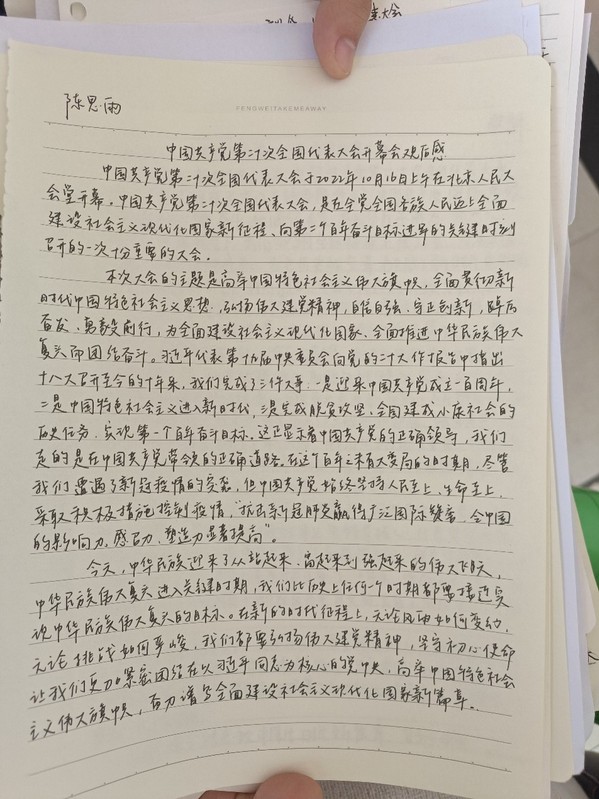 陈思雨
#ENGWEITAKEMEAWAY
中国共产党第二十次全国代表大会开幕会观后感
中国共产党第二十次全国代表大会于2022年10月16日上午在北京人民大
会堂开幕。中国共产党第二十次全国代表大会，是在全党全国各族人民迈上全面
建设社会主义现代化国家新征程、向第二个百年奋斗目标进军的关键时刻
召开的一次十分重要的大会。
本次大会的主题是高举中国特色社会主义伟大旗帜，全面贯彻新
时代中国特色社会主义思想，弘扬伟大建党精神，自信自强、守正创新，踔厉
奋发、勇毅前行，为全面建设社会主义现代化国家、全面推进中华民族伟大
复兴而团结奋斗。习近平代表第十九届中央委员会向党的二十大作报告中指出
十八大召开至今的十年来，我们完成了三件大事：一是迎来中国共产党成立一百周年，
二是中国特色社会主义进入新时代，三是完成脱贫攻坚、全面建成小康社会的
历史任务，实现第一个百年奋斗目标。这正显示着中国共产党的正确领导，我们
走的是在中国共产党带领的正确道路。在这个百年之未有大变局的时期，尽管
我们遭遇了新冠疫情的突袭，但中国共产党始终坚持人民至上、生命至上，
采取积极措施控制疫情，"抗击新冠肺炎赢得广泛国际赞誉，令中国
的影响力、感召力、塑造力显著提高"。
今天，中华民族迎来了从站起来、富起来到强起来的伟大飞跃，
中华民族伟大复兴进入关键时期，我们比历史上任何一个时期都要接近实
现中华民族伟大复兴的目标。在新的时代征程上，无论风云如何变幻，
无论挑战如何严峻，我们都要弘扬伟大建党精神，坚守初心使命
让我们更加紧密团结在以习近平同志为核心的党中央，高举中国特色社会
主义伟大旗帜，奋力谱写全面建设社会主义现代化国家新篇章。